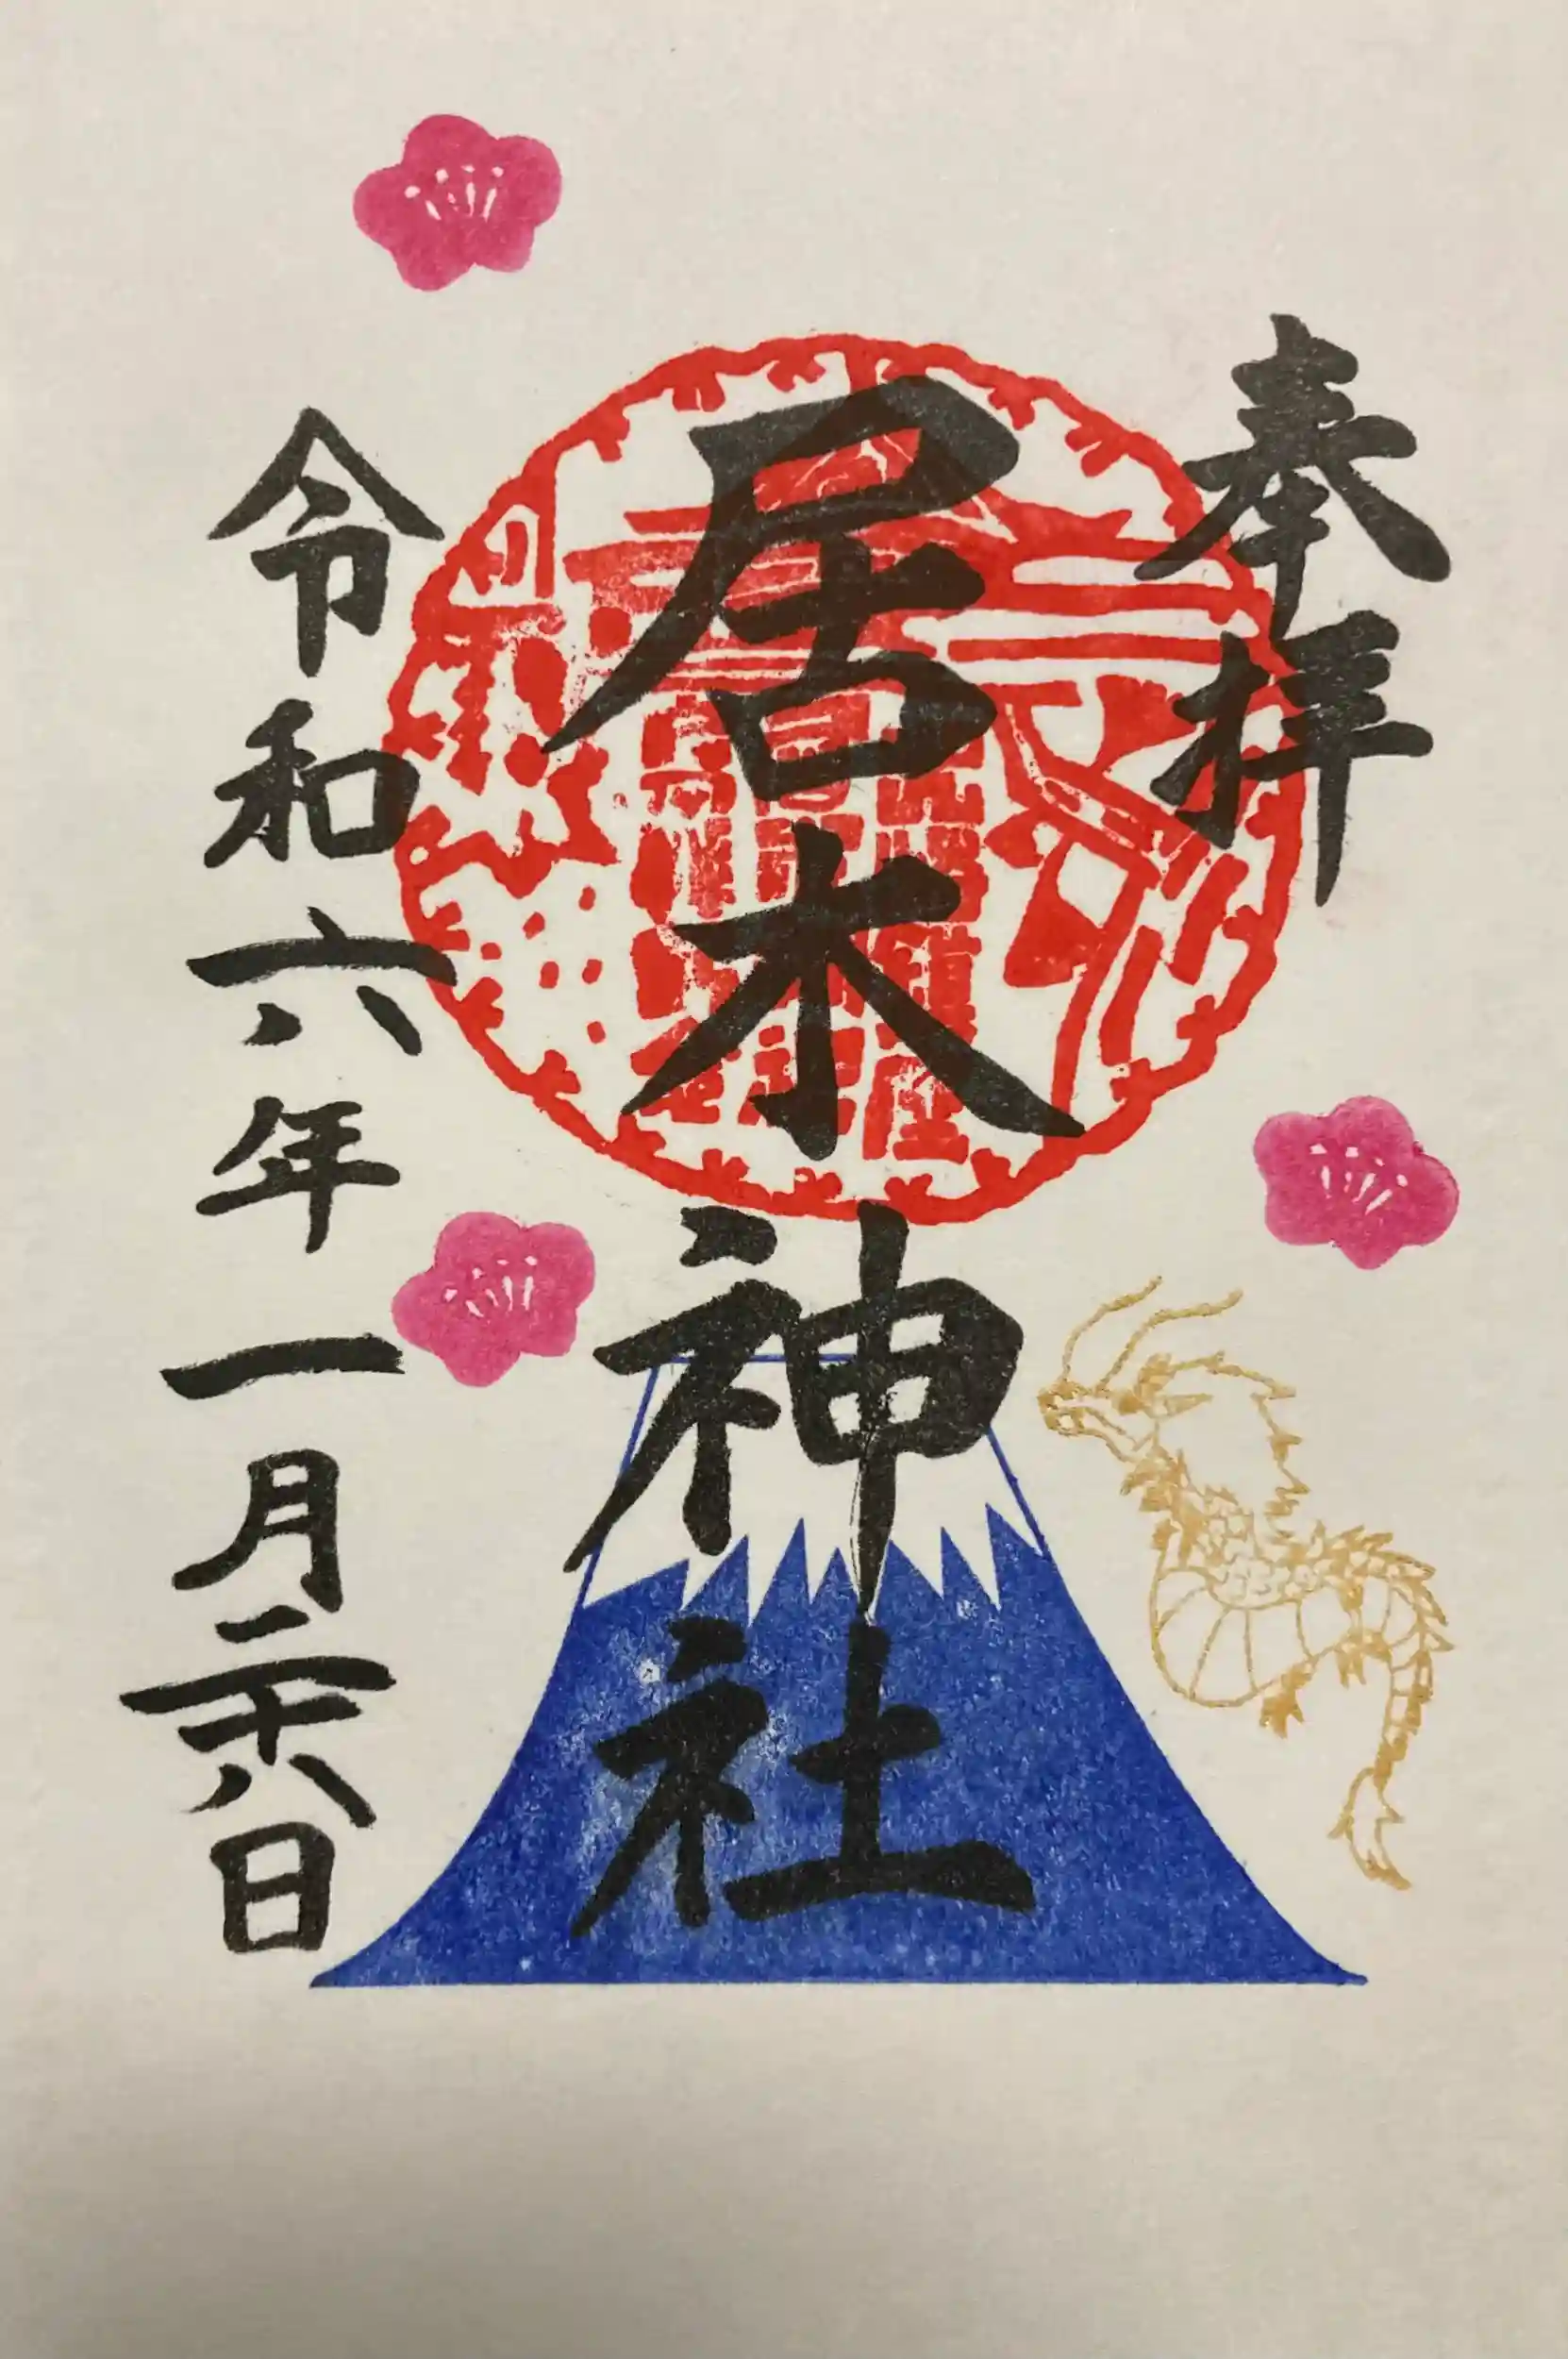 奉拝
居木神社
令和六年一月二十八日